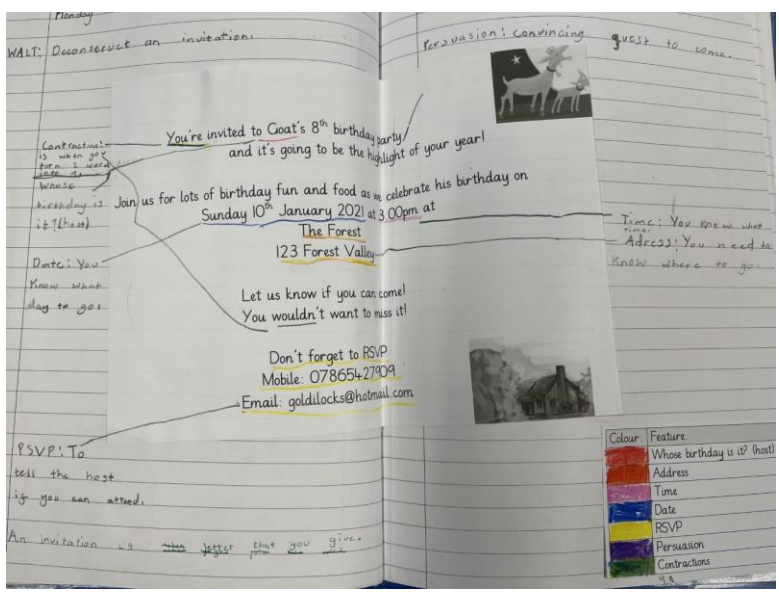 Monday
WALT: Deconstruct an invitation.
Persuasion: Convincing guest to come.
Contraction:
is when you
turn 2 word
into 1.
Whose
birthday is
it? (host)
Date: You
Know what
day to go.
You're invited to Goat's 8th birthday party
and it's going to be the highlight of your year!
Join us for lots of birthday fun and food as we celebrate his birthday on
Sunday 10th January 2021 at 3.00pm at
The Forest
123 Forest Valley
Let us know if you can come!
You wouldn't want to miss it!
Don't forget to RSVP
Mobile: 07865427909
Email: goldilocks@hotmail.com
Time: You know what
time.
Adress: You need to
know where to go.
RSVP: To
tell the host
if you can attend.
An invitation is letter that you give.
Colour: Feature:
Whose birthday is it? (host)
Address
Time
Date
RSVP
Persuasion
Contractions